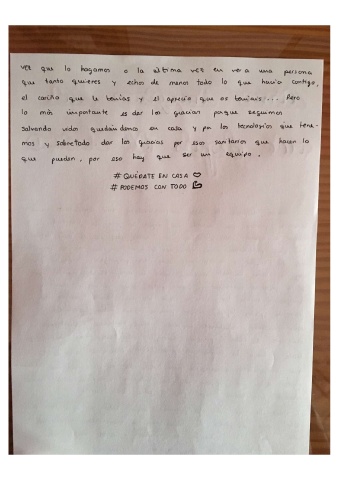 vez que lo hagamos o la última vez en ver a una persona
que tanto quieres y echas de menos todo lo que hacía contigo,
el cariño que le tenías y el aprecio que os teníais... Pero
lo más importante es dar las gracias porque seguimos
salvando vidas quedándonos en casa y por las tecnologías que tene-
mos y sobretodo dar las gracias por esos sanitarios que hacen lo
que pueden, por eso hay que ser un equipo.
# QUÉDATE EN CASA
# PODEMOS CON TODO